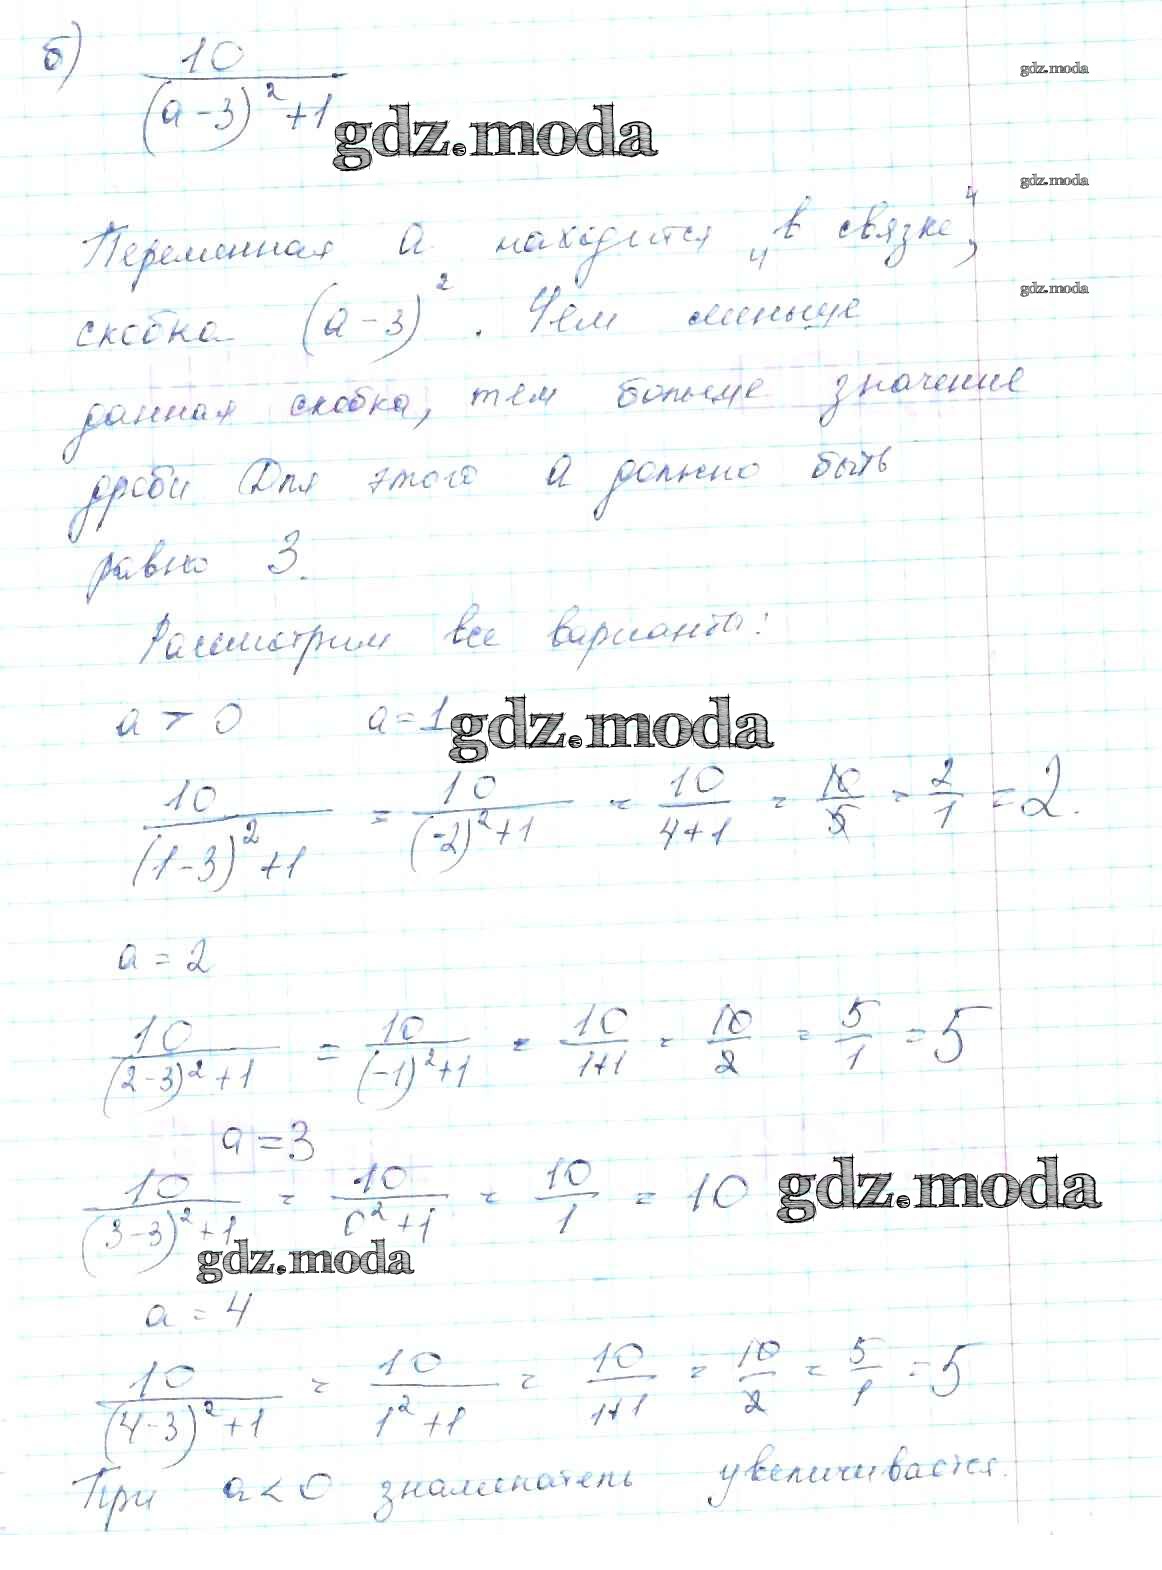 б) 10/((a-3)²+1)
gdz.moda
gdz.moda
gdz.moda
Переменная a находится „в связке“,
gdz.moda
скобка (a-3)². Чем меньше
данная скобка, тем больше значение
дроби Для этого a должно быть
равно 3.
Рассмотрим все варианты:
a > 0 a=1
gdz.moda
10/((1-3)²+1) = 10/((-2)²+1) = 10/(4+1) = 10/5 = 2/1 = 2.
a = 2
10/((2-3)²+1) = 10/((-1)²+1) = 10/(1+1) = 10/2 = 5/1 = 5
a = 3
10/((3-3)²+1) = 10/(0²+1) = 10/1 = 10
gdz.moda
gdz.moda
a = 4
10/((4-3)²+1) = 10/(1²+1) = 10/(1+1) = 10/2 = 5/1 = 5
При a<0 знаменатель увеличивается.